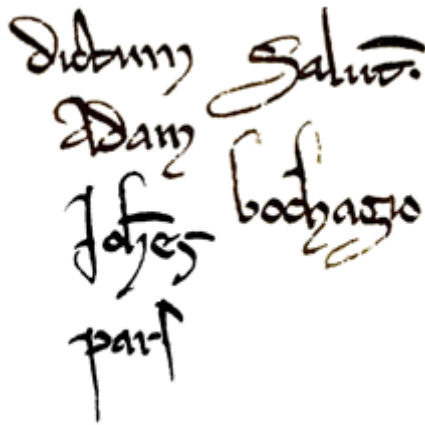 dictum
Adam
Joh̄es
parſ
Salut̄.
bochagio